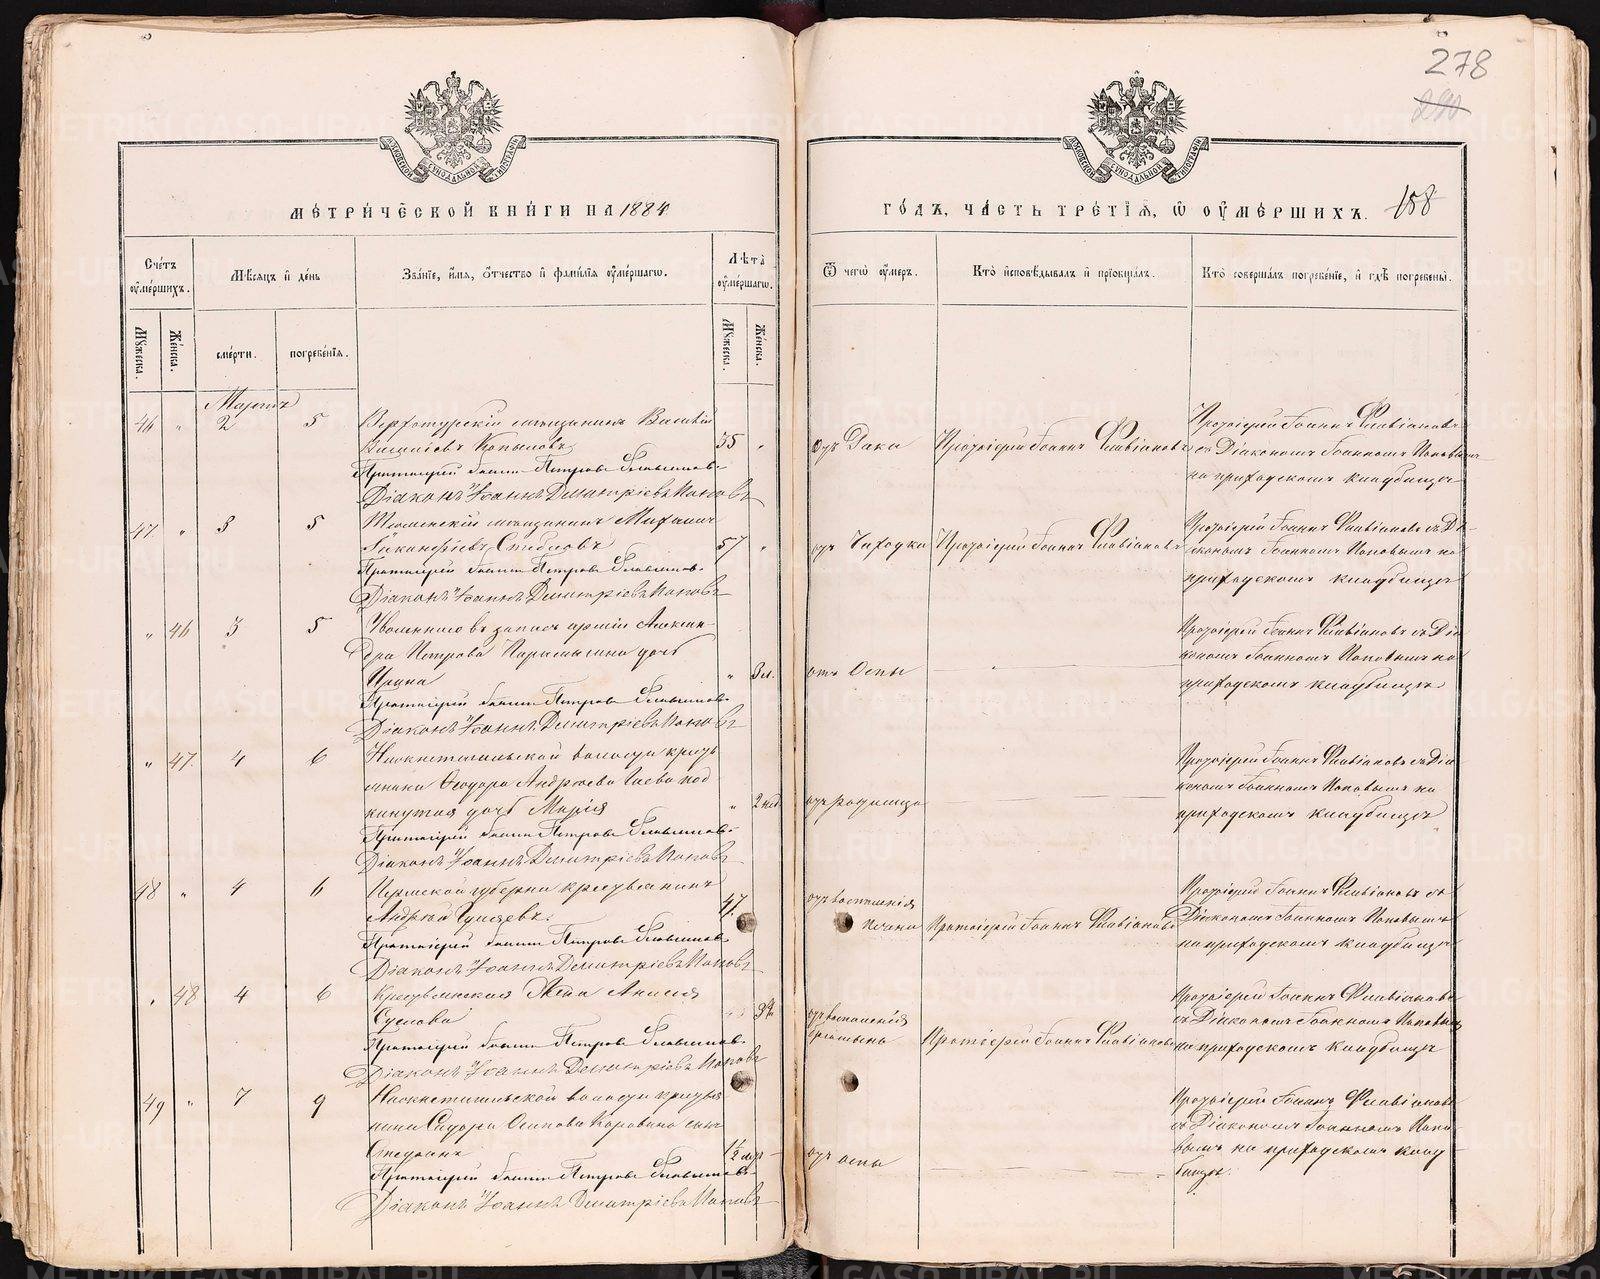 278
МЕТРИЧЕСКОЙ КНИГИ НА 1884
ГОДЪ, ЧАСТЬ ТРЕТІЯ, Ѿ ОУМЕРШИХЪ. 158
МОСКОВСКОЙ СУНОДАЛЬНОЙ ТИПОГРАФІИ
МОСКОВСКОЙ СУНОДАЛЬНОЙ ТИПОГРАФІИ
Счетъ оумершихъ.
Мѣсяцъ и день
Званіе, имя, отчество и фамилія оумершагѡ.
Лѣта оумершагѡ.
Ѿ чегѡ оумеръ.
Кто исповѣдывалъ и пріобщалъ.
Кто совершалъ погребеніе, и гдѣ погребены.
Мужеска.
Женска.
смерти.
погребенія.
Мужеска.
Женска.
Мартъ
46 " 2 5 Верхотурскій мѣщанинъ Василій
Копыловъ 55 "
Протоіерей Іоаннъ Петровъ Флавіановъ
Діаконъ Іоаннъ Димитріевъ Поповъ
отъ Рака
Протоіерей Іоаннъ Флавіановъ
Протоіерей Іоаннъ Флавіановъ
съ Діакономъ Іоанномъ Поповымъ
на приходскомъ кладбищѣ
47 " 3 5 Тюменскій мѣщанинъ Михаилъ
57 "
Протоіерей Іоаннъ Петровъ Флавіановъ
Діаконъ Іоаннъ Димитріевъ Поповъ
отъ Чахотки
Протоіерей Іоаннъ Флавіановъ
Протоіерей Іоаннъ Флавіановъ съ Ді-
акономъ Іоанномъ Поповымъ на
приходскомъ кладбищѣ
" 46 3 5 Уволеннаго въ запасъ арміи Алексан
дра Петрова дочь
Ирина " 3 м.
Протоіерей Іоаннъ Петровъ Флавіановъ
Діаконъ Іоаннъ Димитріевъ Поповъ
отъ Оспы
Протоіерей Іоаннъ Флавіановъ съ Діа
кономъ Іоанномъ Поповымъ на
приходскомъ кладбищѣ
" 47 4 6 волости кресть
янина Ѳеодора Андреева под
кинутая дочь Марія " 2 нед
Протоіерей Іоаннъ Петровъ Флавіановъ
Діаконъ Іоаннъ Димитріевъ Поповъ
отъ родимца
Протоіерей Іоаннъ Флавіановъ съ Діа
кономъ Іоанномъ Поповымъ на
приходскомъ кладбищѣ
48 " 4 6 Пермской губерніи крестьянинъ
Андрей 47
Протоіерей Іоаннъ Петровъ Флавіановъ
Діаконъ Іоаннъ Димитріевъ Поповъ
отъ воспаленія
печени
Протоіерей Іоаннъ Флавіановъ
Протоіерей Іоаннъ Флавіановъ съ
Діакономъ Іоанномъ Поповымъ
на приходскомъ кладбищѣ
" 48 4 6 Крестьянская
Суслова
Протоіерей Іоаннъ Петровъ Флавіановъ
Діаконъ Іоаннъ Димитріевъ Поповъ
отъ воспаленія
брюшины
Протоіерей Іоаннъ Флавіановъ
Протоіерей Іоаннъ Флавіановъ
съ Діакономъ Іоанномъ Поповымъ
на приходскомъ кладбищѣ
49 " 7 9 волости крестья
нина Сидора Осипова Коровина сынъ
Стефанъ 1½ мѣс
Протоіерей Іоаннъ Петровъ Флавіановъ
Діаконъ Іоаннъ Димитріевъ Поповъ
отъ оспы
Протоіерей Іоаннъ Флавіановъ
съ Діакономъ Іоанномъ Попо
вымъ на приходскомъ клад
бищѣ.
METRIKI.GASO-URAL.RU